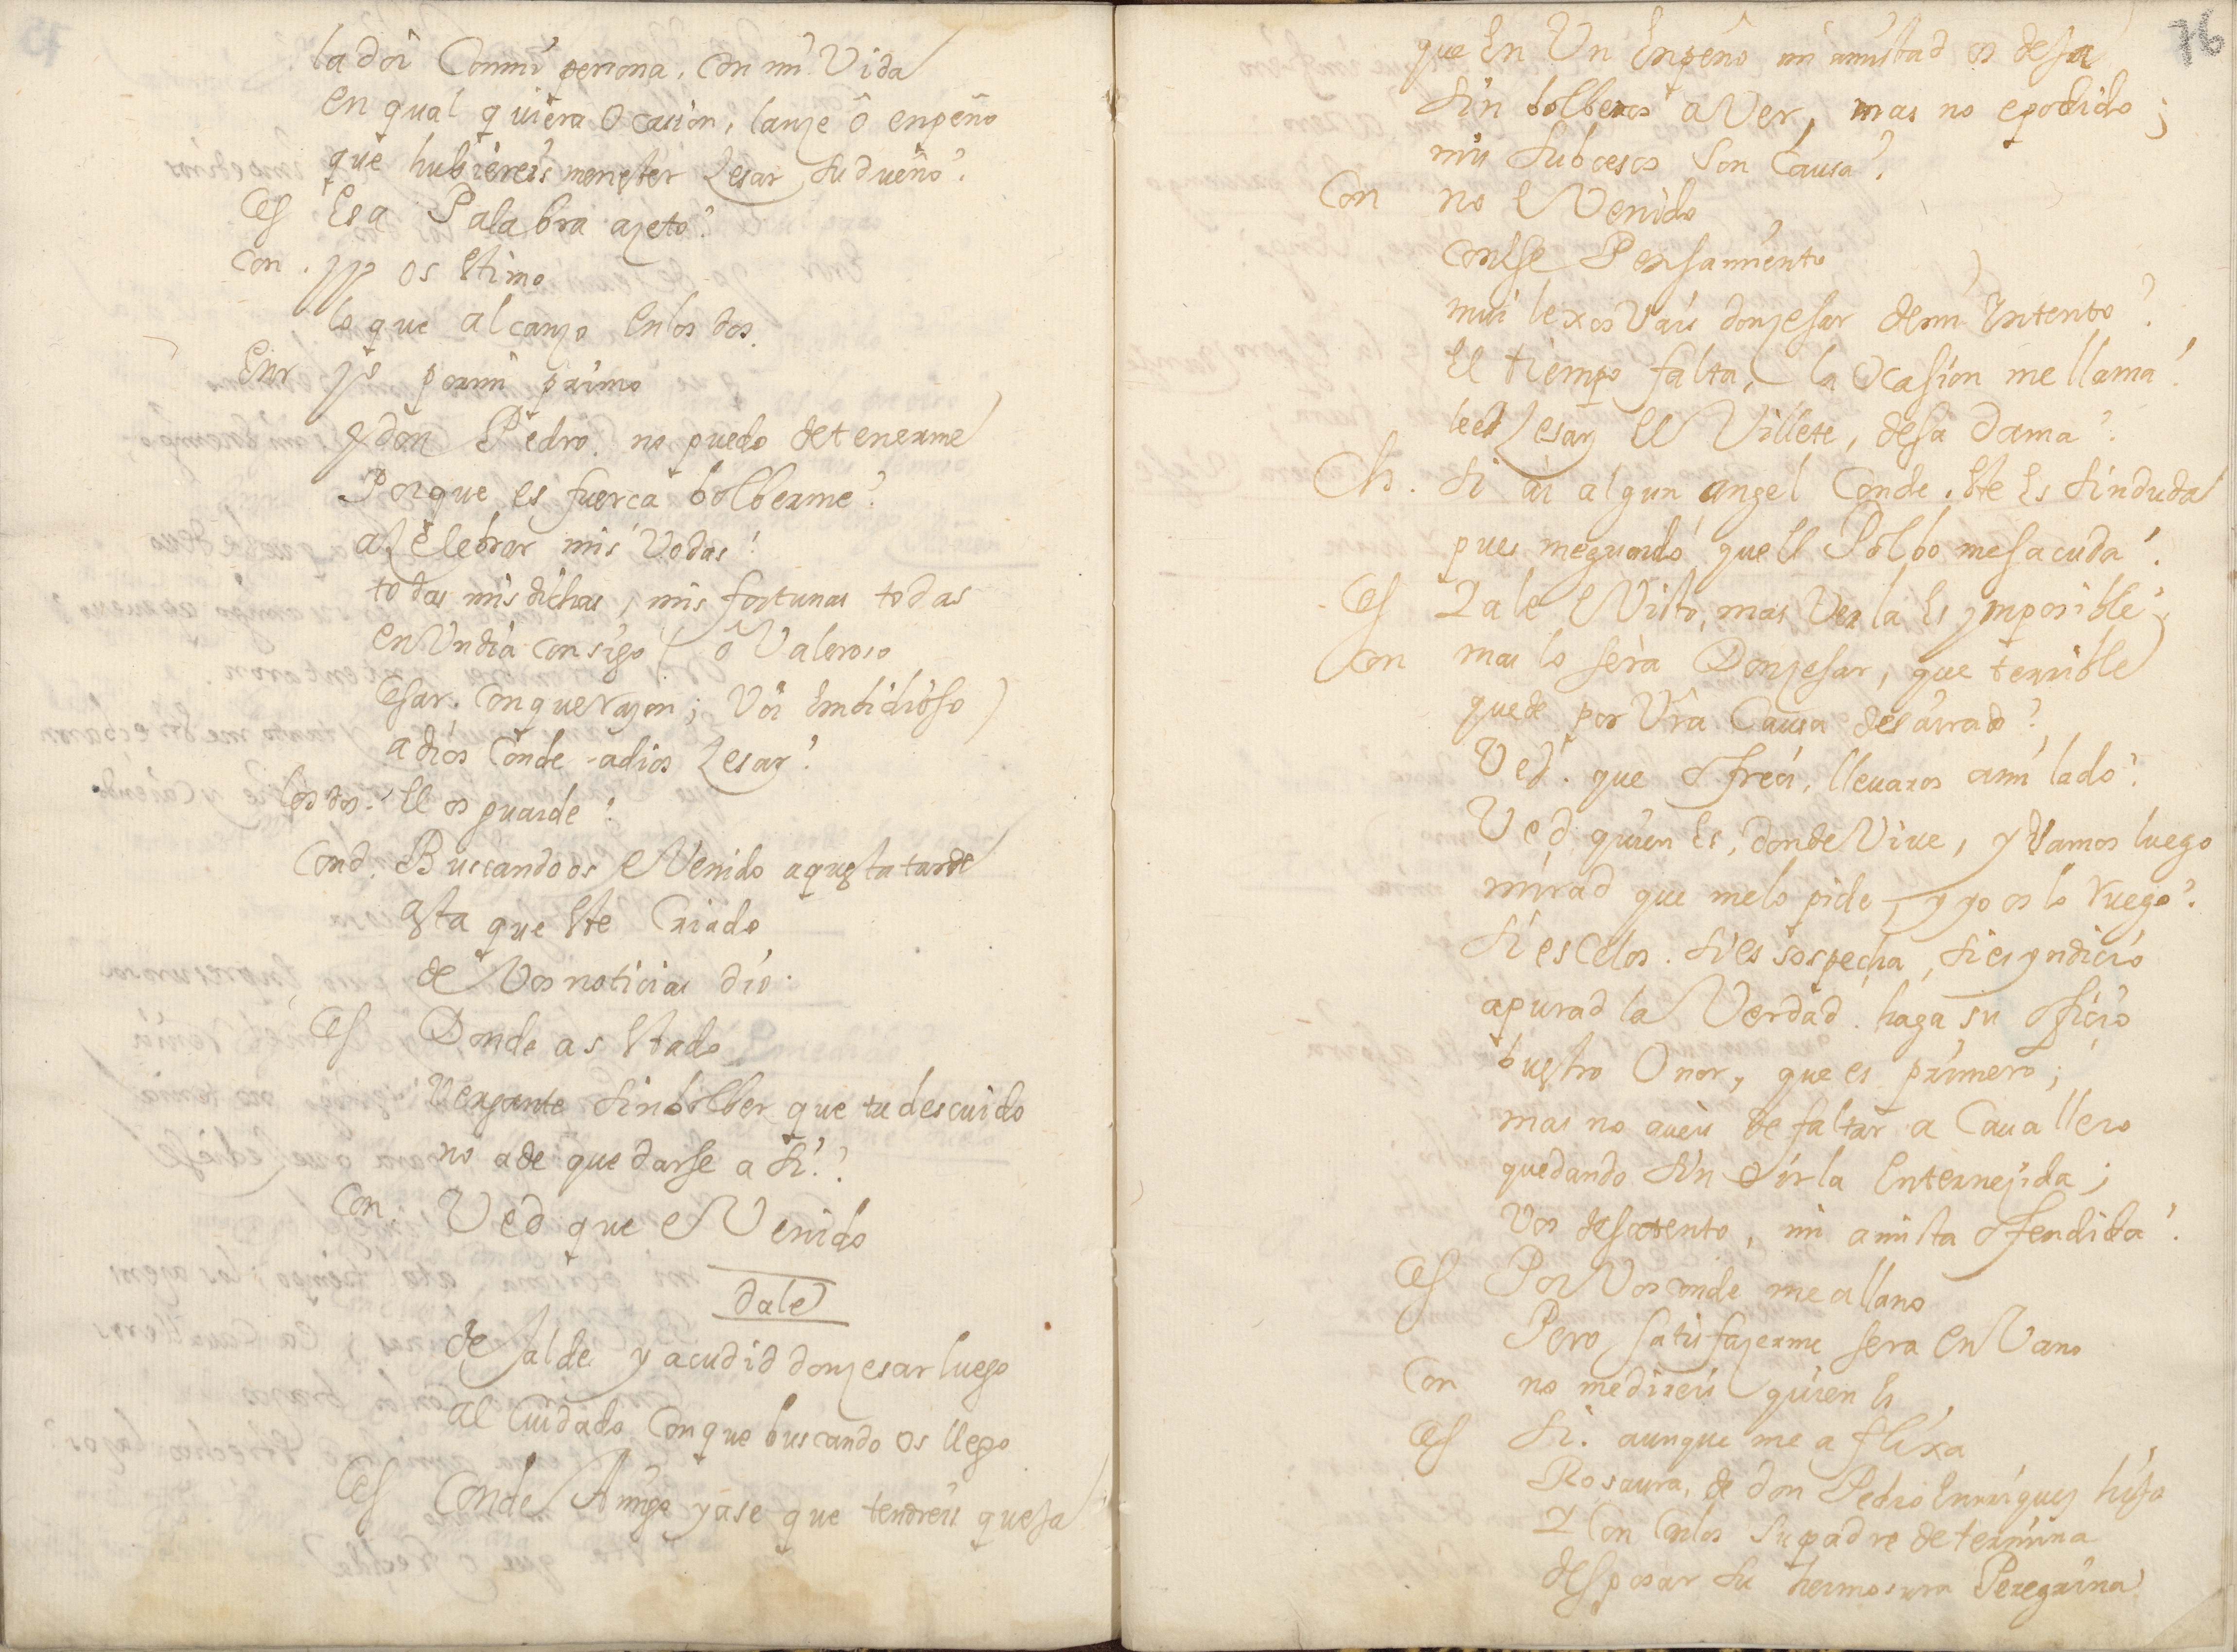 la doi Conmi persona, con mi Vida
en qual quiera Ocasion, lanze ô enpeño
que hubiereis menester Zesar su dueño?
Ces Esa Palabra azeto?
Con. yo os estimo
lo que alcanzo en los dos.
Enr yo por mi primo
y don Pedro. no puedo detenerme
Porque es fuerca bolberme?
a Zelebrar mis Vodas!
todas mis dichas, mis fortunas todas
en Un dia consigo ( ô Valeroso
Cesar. con que razon; Voi Embidioso )
adios Conde - adios Zesar?
Los dos. El os guarde?
Cond. Buscandoos e Venido aquesta tarde
asta que este Criado
de Vos noticias dio.
Ces Donde as estado
Vergante sin bolber que tu descuido
no a de quedarse a si.?
Con. Ved que e Venido
dale
desalde y acudid don zesar luego
al Cuidado con que buscando os llego
Ces Conde Amigo ya se que tendreis quesa
76
que En Un Enpeño mi amistad os desa
sin bolberos a Ver, mas no e podido;
mis subcesos son Causa?
Con no e Venido
con ese Pensamiento
mui lexos Vais don zesar de mi Yntento?
El tiempo falta, la Ocasion me llama!
leed Zesar el Villete, desa Dama?
Ch. si ai algun angel Conde. este Es sin duda
pues me guardó que el Polbo me sacuda!
Ces Ya le e Visto, mas Verla Es ymposible?
Con mas lo serà Don zesar, que terrible
quede por Vrã Causa desairado?
Ved. que ofreci, llevaros a mi lado?
Ved quien Es, donde Vive, y Vamos luego
mirad que me lo pide, y yo os lo Ruego?
si es Celos. si es sospecha, si es yndicio
apurad la Verdad. haga su oficio
buestro Onor, que es primero;
mas no aveis de faltar a Cavallero
quedando sin oirla Enternezida;
Vos desatento, mi amista ofendida?
Ces Por Vos conde me allano
Pero satisfazerme sera en Vano
Con no me direis quien Es
Ces si. aunque me aflixa
Rosaura, de don Pedro Enrriquez hija
Y Con Carlos su padre determina
desposar su hermosura Peregrina